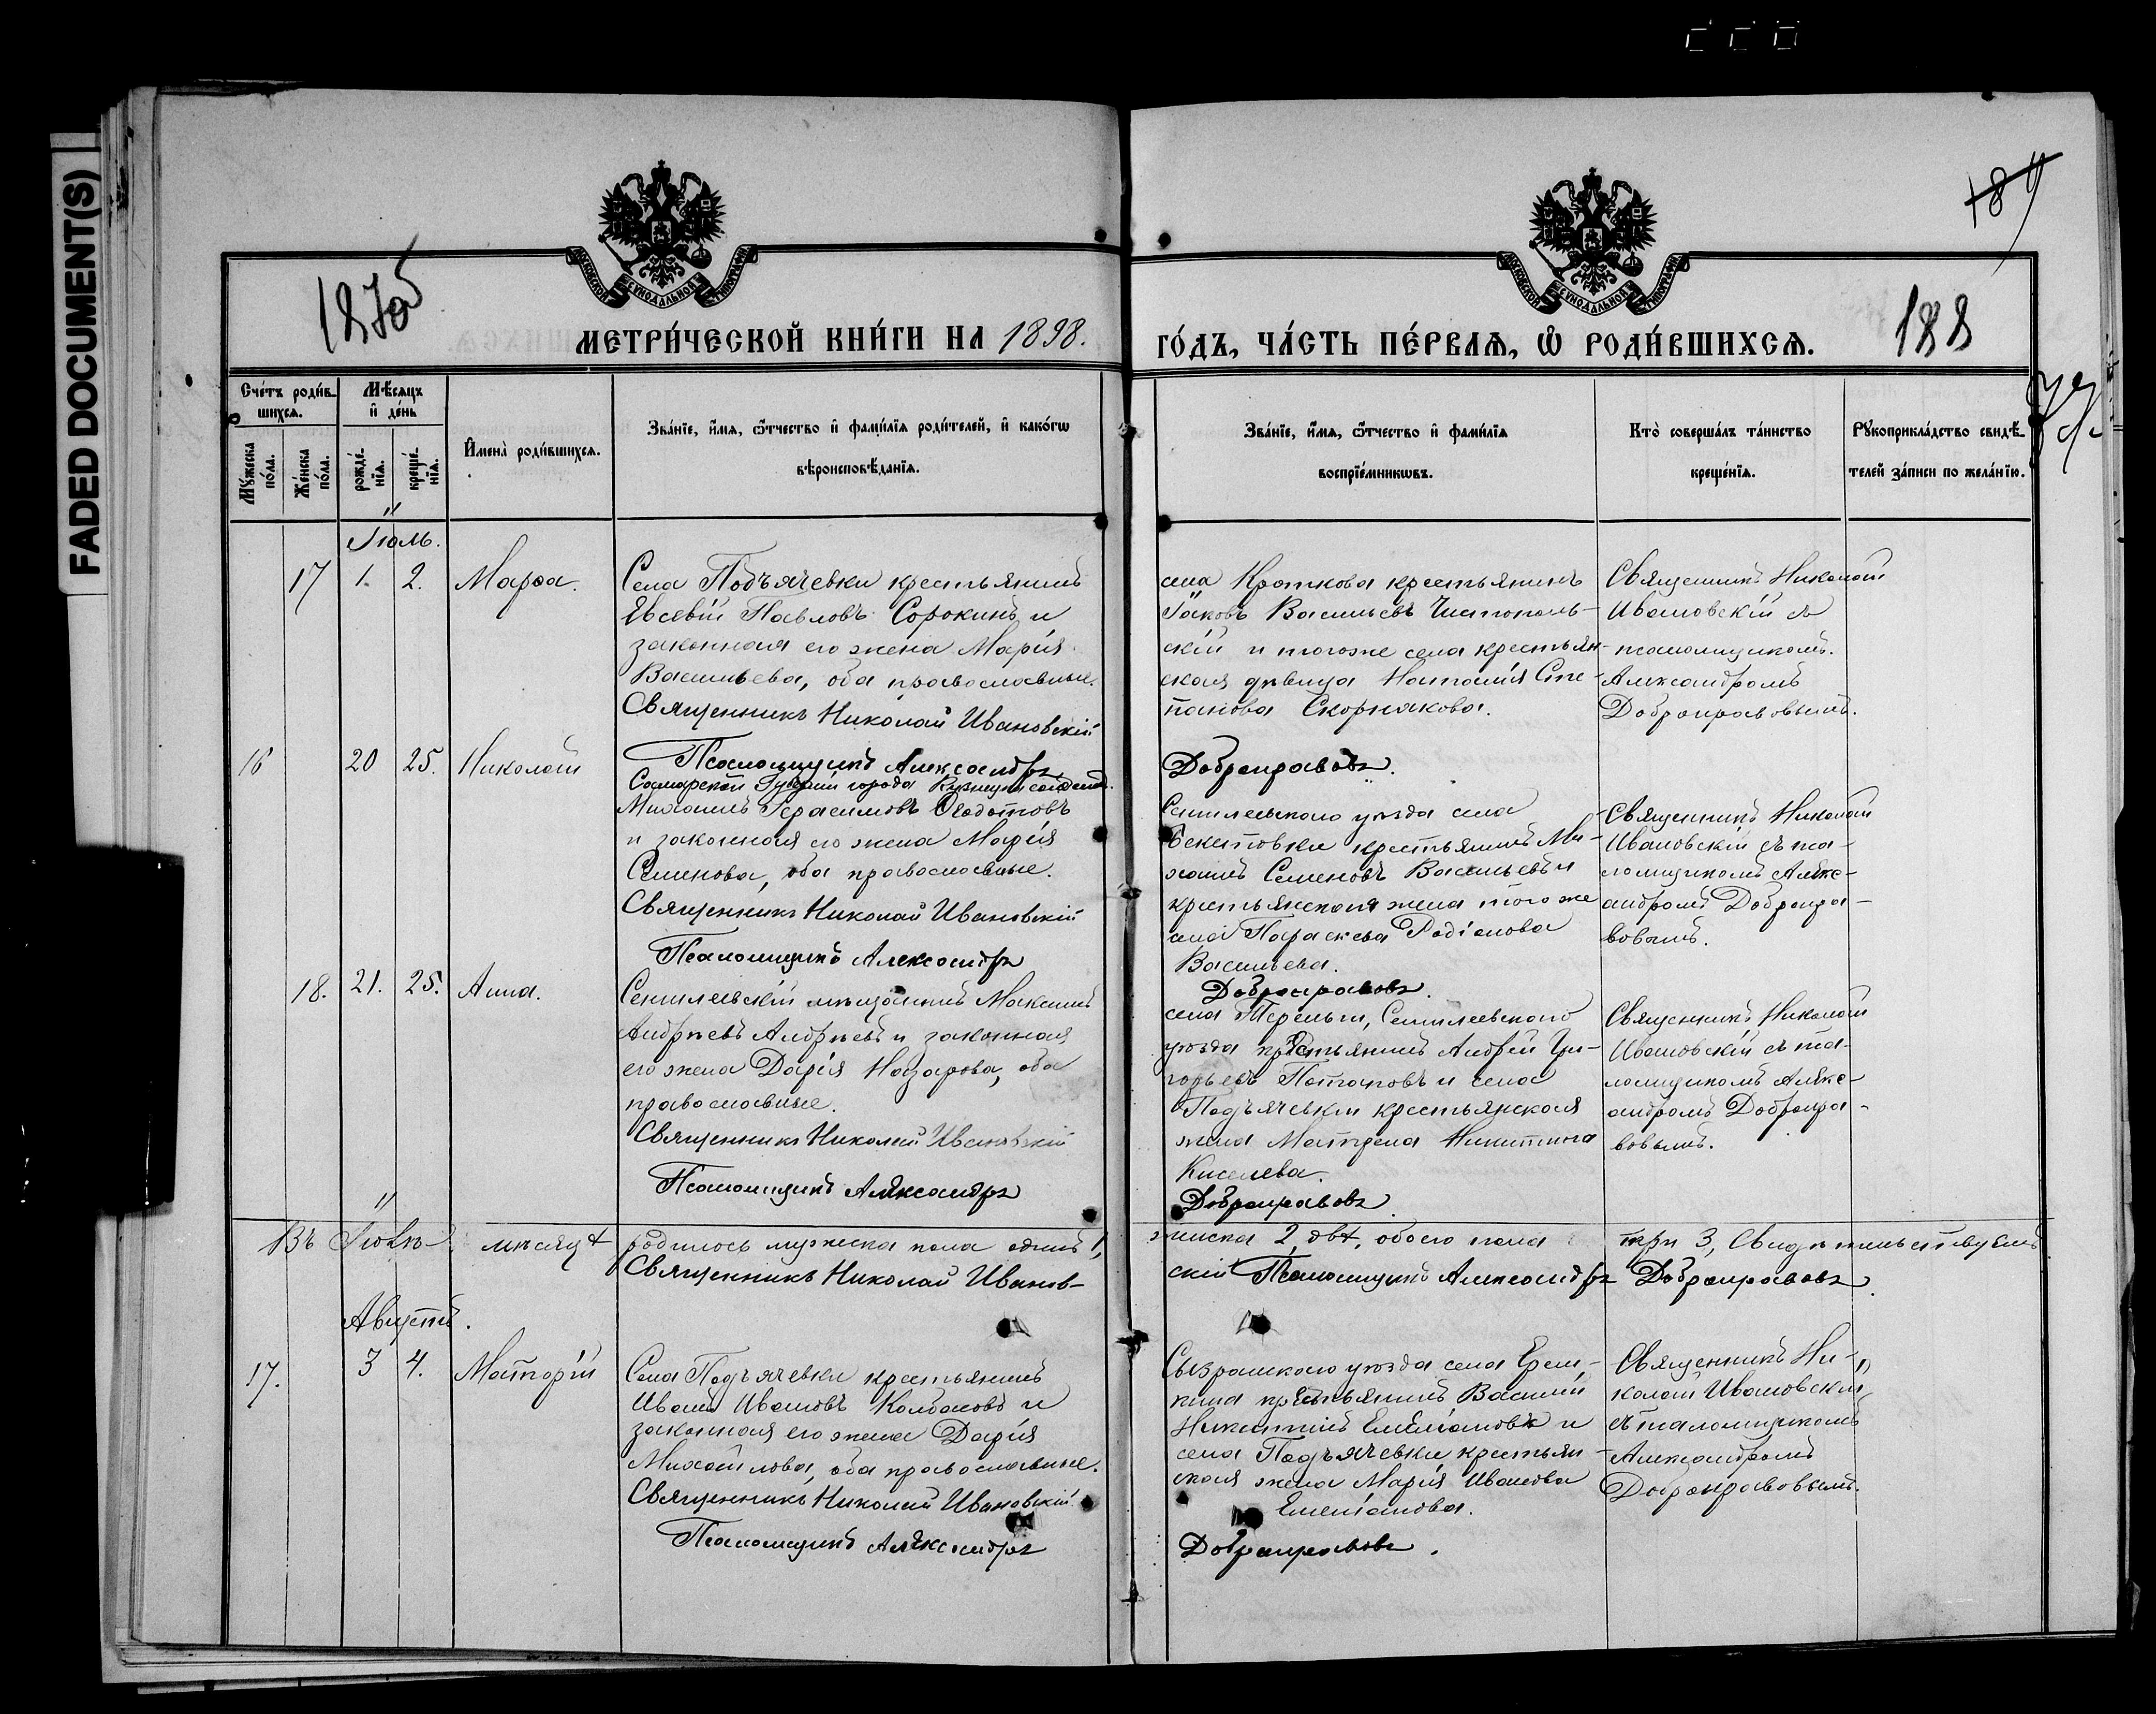 FADED DOCUMENT(S)
187об
189
188
МОСКОВСКОЙ СѴНОДАЛЬНОЙ ТИПОГРАФІИ
МОСКОВСКОЙ СѴНОДАЛЬНОЙ ТИПОГРАФІИ
МЕТРИ́ЧЕСКОЙ КНИ́ГИ НА 1898.
ГО́ДЪ, ЧА́СТЬ ПЕ́РВАѦ, Ѡ҆ РОДИ́ВШИХСѦ.
Сче́тъ роди́в-
шихся.
Мѣ́сяцъ
и҆ де́нь
Мꙋ́жеска
по́ла.
Же́нска
по́ла.
рожде́-
нїя.
креще́-
нїя.
И҆мена̀ роди́вшихся.
Зва́нїе, и҆́мя, ѻ҆́тчество и҆ фами́лїя роди́телей, и҆ како́гѡ
вѣроисповѣ́данїя.
Зва́нїе, и҆́мя, ѻ҆́тчество и҆ фами́лїя
воспрїе́мникѡвъ.
Кто̀ соверша́лъ та́инство
креще́нїя.
Рꙋкоприкла́дство свидѣ́-
телей за́писи по жела́нїю.
Іюль.
17 1. 2. Марѳа.
Села Подъячевки крестьянинъ
Евсевій Павловъ Сорокинъ и
законная его жена Марія
Васильева, оба православные.
Священникъ Николай Ивановскій
Псаломщикъ Александръ
села Кроткова крестьянинъ
Іаковъ Васильевъ Чистополь-
скій и тогоже села крестьян-
ская дѣвица Наталія Сте-
панова Скорнякова.
Добронравовъ.
Священникъ Николай
Ивановскій съ
псаломщикомъ
Александромъ
Добронравовымъ.
16 20 25. Николай
Самарской Губерніи города
Михаилъ Герасимовъ
и законная его жена Марія
Семенова, оба православные.
Священникъ Николай Ивановскій
Псаломщикъ Александръ
Сенгилеевскаго уѣзда села
Бекетовки крестьянинъ Ми-
хаилъ Семеновъ Васильевъ и
крестьянская жена того же
села Параскева Родіонова
Васильева.
Добронравовъ.
Священникъ Николай
Ивановскій съ пса-
ломщикомъ Алекс-
андромъ Добронра-
вовымъ.
18. 21. 25. Анна.
Сенгилеевскій мѣщанинъ Максимъ
Андреевъ Андреевъ и законная
его жена Дарія Назарова, оба
православные.
Священникъ Николай Ивановскій
Псаломщикъ Александръ
села Тереньги, Сенгилеевскаго
уѣзда крестьянинъ Андрей Гри-
горьевъ Потаповъ и села
Подъячевки крестьянская
жена Матрена Никитина
Киселева.
Добронравовъ.
Священникъ Николай
Ивановскій съ пса-
ломщикомъ Алекс-
андромъ Добронра-
вовымъ.
Въ Іюлѣ мѣсяцѣ родилось мужеска пола одинъ 1,
женска 2, двѣ, обоего пола три 3, Свидѣтельствуемъ
Священникъ Николай Иванов-
скій Псаломщикъ Александръ Добронравовъ.
Августъ.
17. 3 4. Матөрій
Села Подъячевки крестьянинъ
Иванъ Ивановъ Колбасовъ и
законная его жена Дарія
Михайлова, оба православные.
Священникъ Николай Ивановскій
Псаломщикъ Александръ
Сызранскаго уѣзда села Ерем-
кина крестьянинъ Василій
и
села Подъячевки крестьян-
ская жена Марія Иванова
Добронравовъ.
Священникъ Ни-
колай Ивановскій
съ псаломщикомъ
Александромъ
Добронравовымъ.